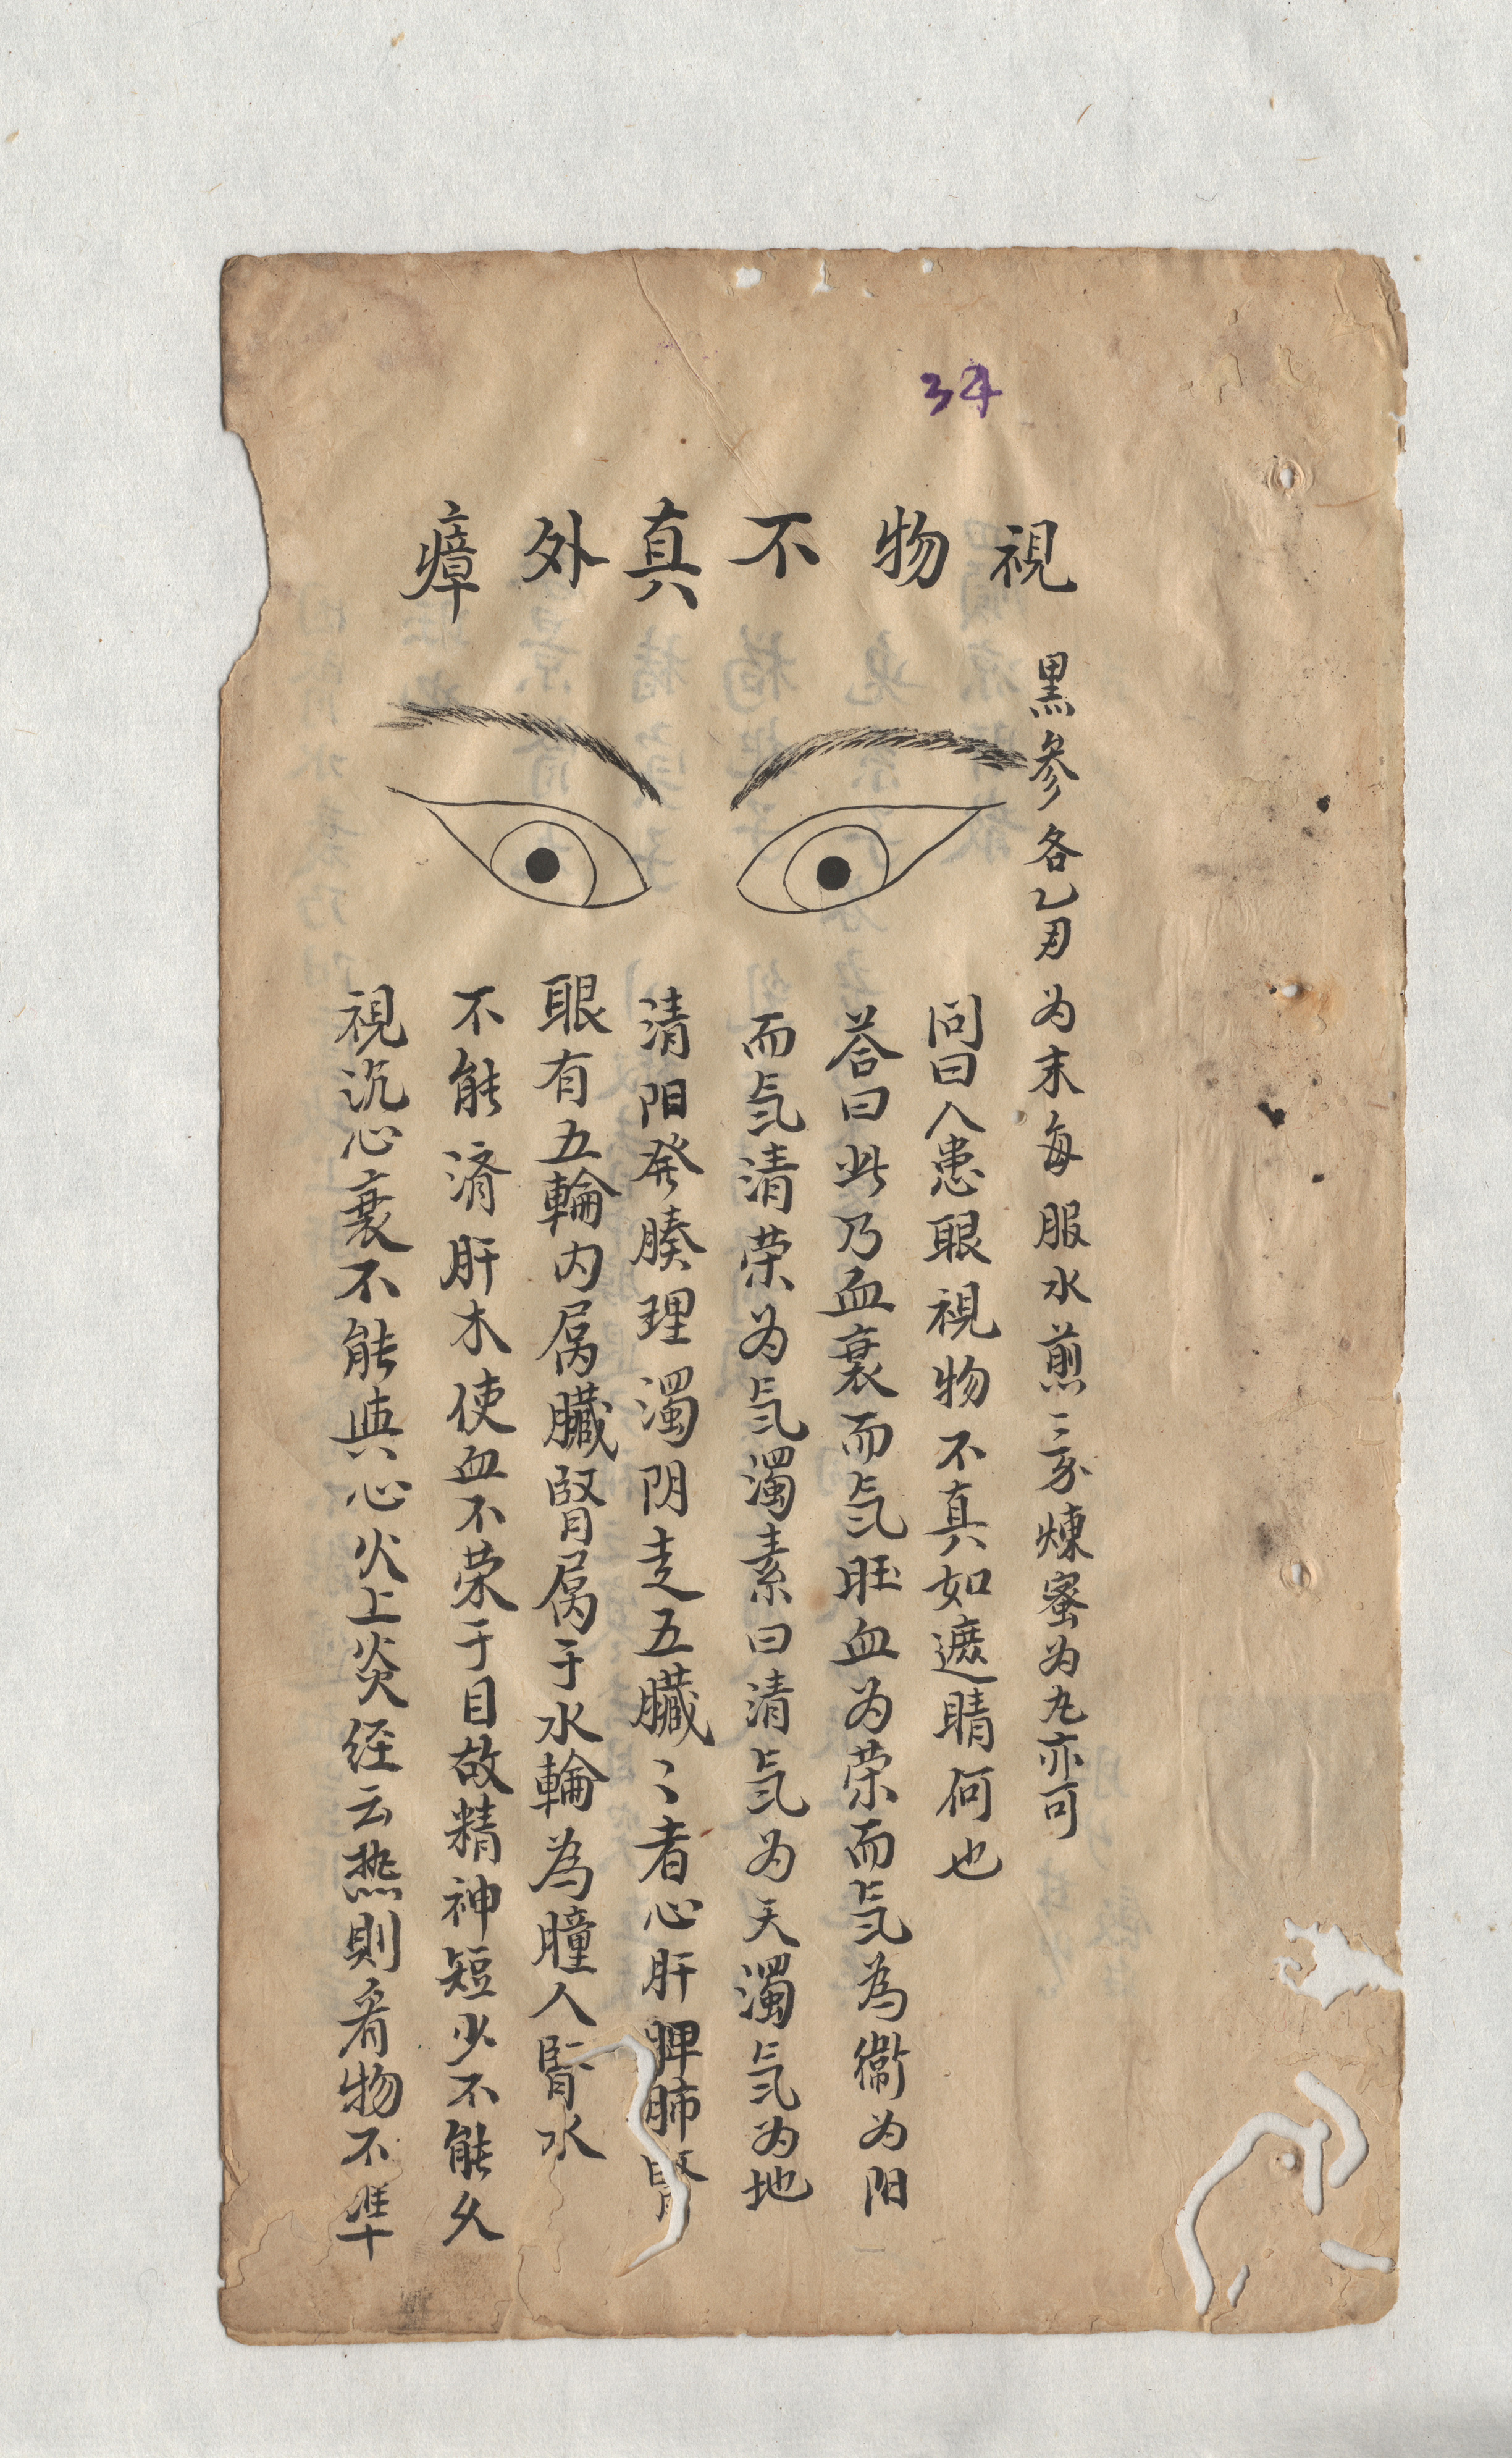 34
視物不真外瘴
黒參各乙月为末每服水煎三家煉蜜为丸亦可
问曰人患眼視物不真如遮睛何也
荅曰此乃血衰而氣旺血为荣而氣為衞为阳
而氣清荣为氣濁素曰清氣为天濁氣为地
清阳発腠理濁阴走五臓〻者心肝脾肺腎
眼有五輪内属臓腎属于水輪為瞳人腎水
不能济肝木使血不荣于目故精神短少不能久
視沉心衰不能與心火上炎経云热則看物不準